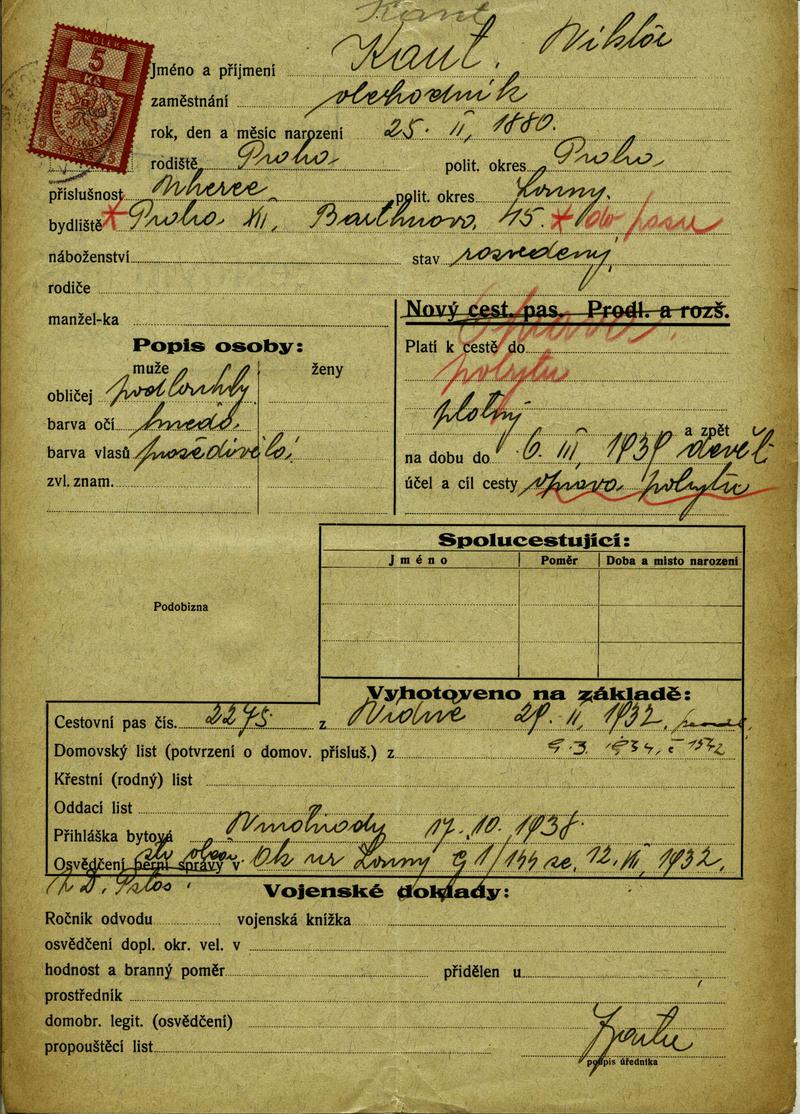 Kant
KOLEK
5
Kč
Jméno a příjmení Kant. Viktor
zaměstnání obchodník
rok, den a měsíc narození 25. II, 1880.
rodiště Praha polit. okres Praha
příslušnost polit. okres Louny.
bydliště Praha XII, 15. do pasu
náboženství stav rozvedený
rodiče
manžel-ka
Nový cest. pas. Prodl. a rozš.
Popis osoby:
muže ženy
obličej podlouhlý
barva očí hnědá
barva vlasů prošedivělá
zvl. znam.
Platí k cestě do
pobytu
platný
a zpět
na dobu do 6. III, 1939 devět
účel a cíl cesty úprava pobytu
Spolucestující:
Jméno Poměr Doba a místo narození
Podobizna
Vyhotoveno na základě:
Cestovní pas čís. 2275 z Vídně 29. II, 1932,
Domovský list (potvrzení o domov. přísluš.) z 9.3. 1934, č 1572
Křestní (rodný) list
Oddací list
Přihláška bytová Vinohrady 17. 10. 1938.
Osvědčení berní správy v Ok úř Louny 12. III, 1932.
Vojenské doklady:
Ročník odvodu vojenská knížka
osvědčení dopl. okr. vel. v
hodnost a branný poměr přidělen u
prostředník
domobr. legit. (osvědčení)
propouštěcí list
podpis úředníka